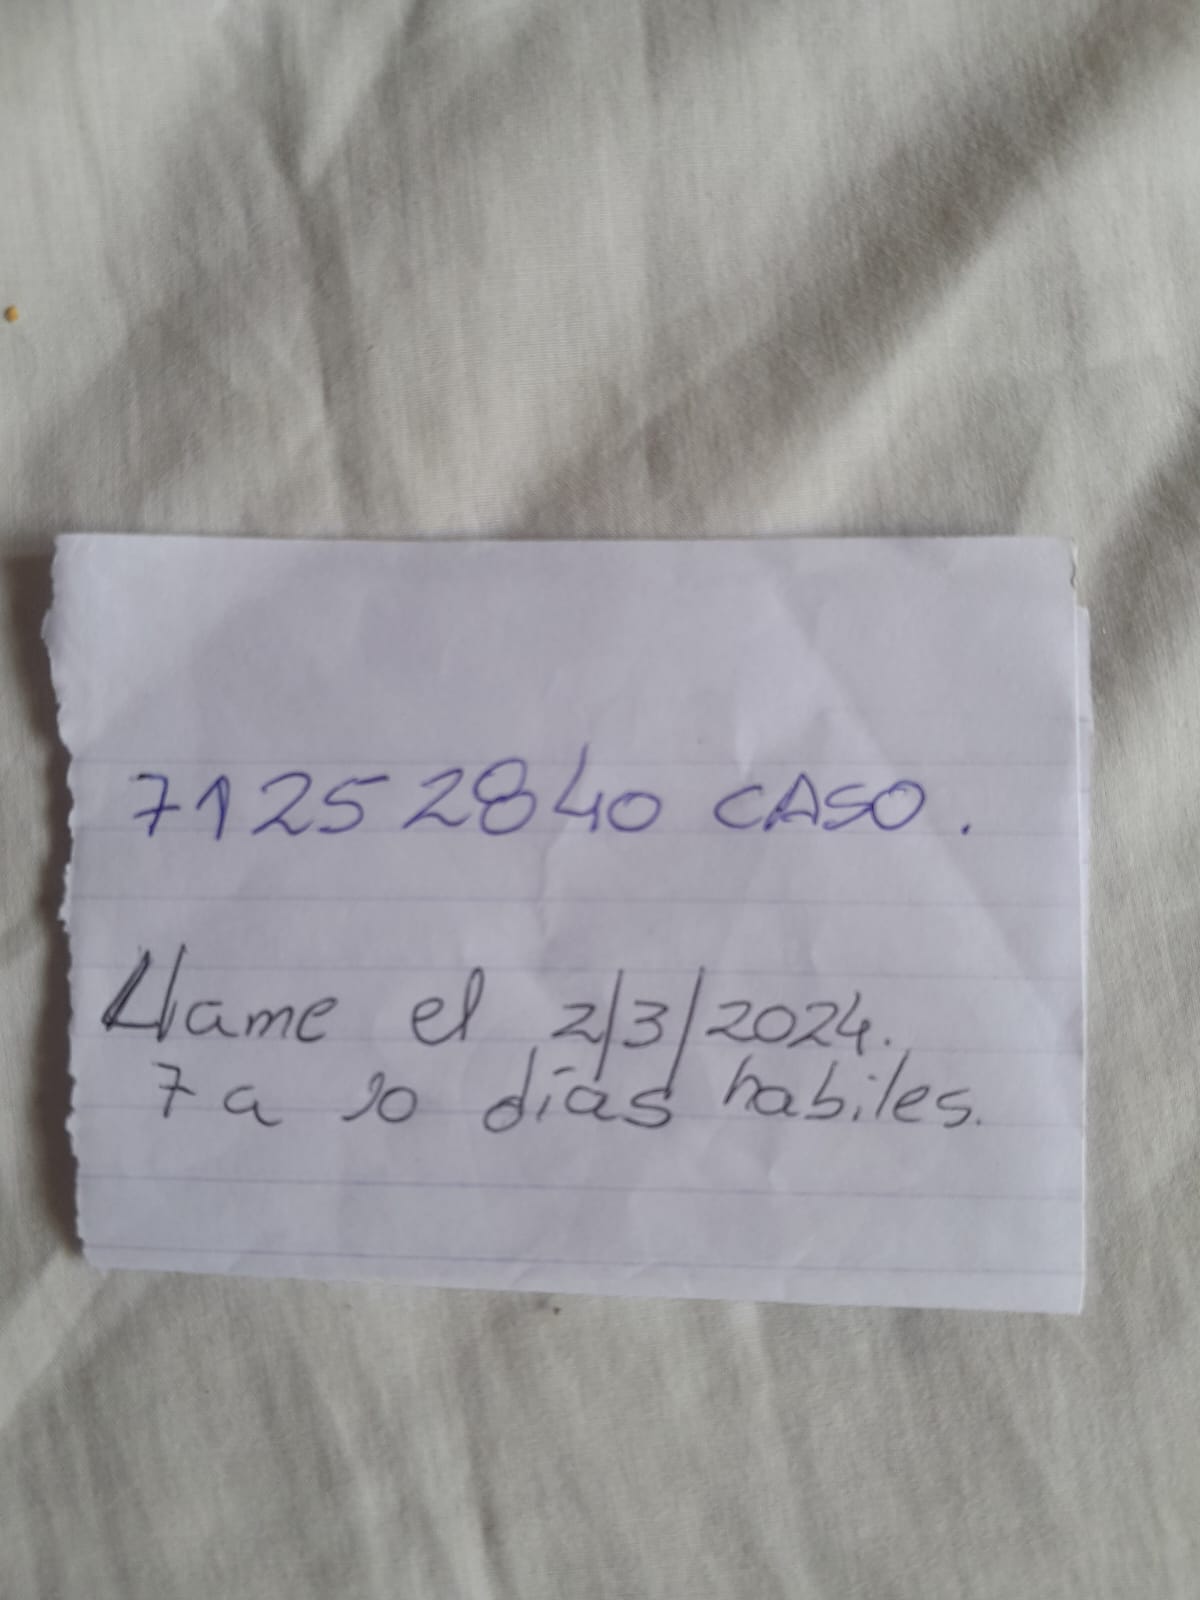 71252840 CASO.
Llame el 2/3/2024.
7 a 10 días habiles.